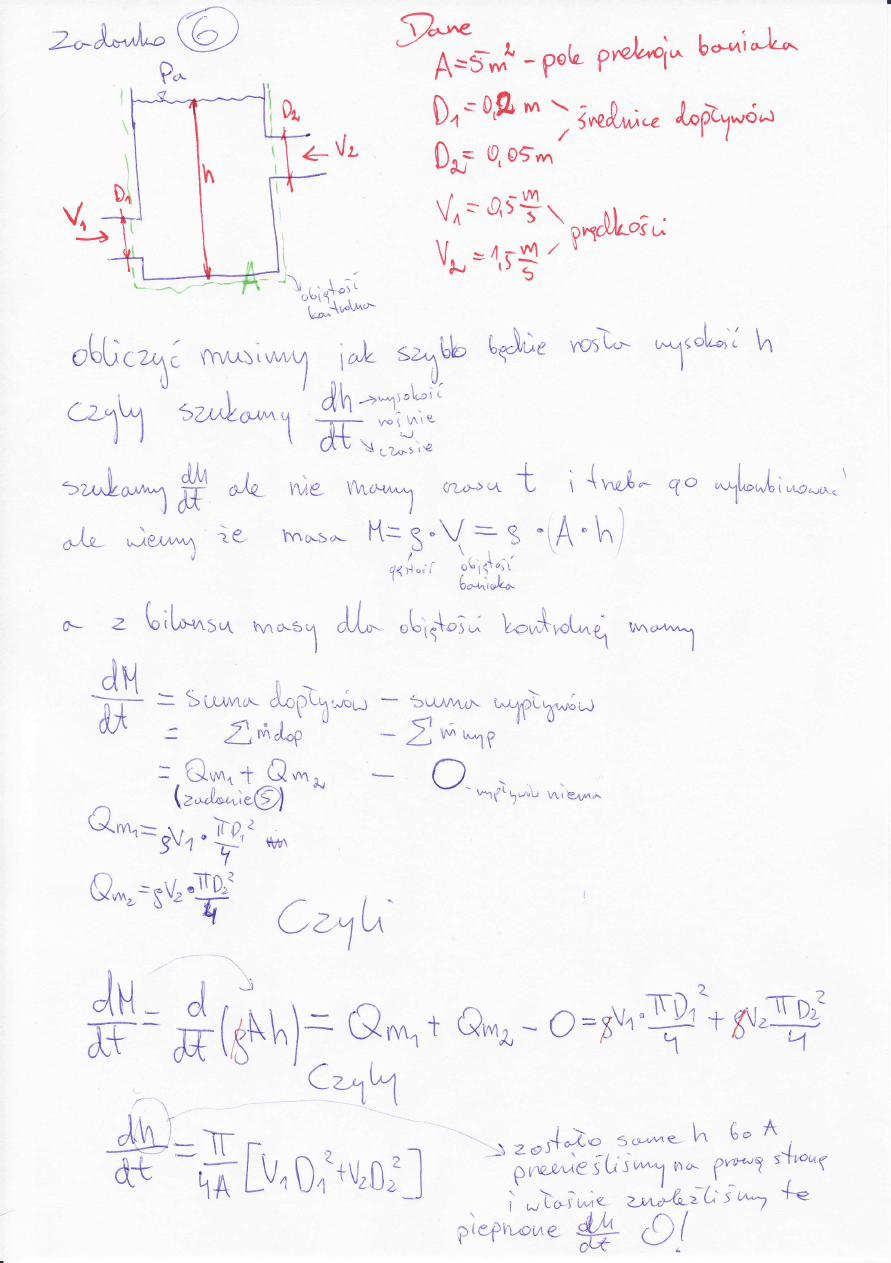 Zadanko ⑥
Dane
A=5m² - pole prekroju baniaka
D₁=0,2 m
D₂= 0,05m
średnice dopływów
V₁= 0,5 m/s
V₂= 1,5 m/s
prędkości
Pa
D₂
V₂
h
D₁
V₁
A
objętość
kontrolna
obliczyć musimy jak szybko będzie rosła wysokość h
czyly szukamy dh/dt → wysokość rośnie w czasie
szukamy dh/dt ale nie mamy czasu t i treba go wykombinować
ale wiemy że masa M= ρ·V = ρ·(A·h)
gęstość objętość
baniaka
a z bilansu masy dla objętości kontrolnej mamy
dM/dt = suma dopływów – suma wypływów
= Σṁdop – Σṁwyp
= Qm₁ + Qm₂ – O - wypływów niema
(zadanie ⑤)
Qm₁= ρV₁·πD₁²/4
Qm₂= ρV₂·πD₂²/4
Czyli
dM/dt = d/dt (ρAh) = Qm₁ + Qm₂ – O = ρV₁·πD₁²/4 + ρV₂ πD₂²/4
Czyly
dh/dt = π/4A [V₁D₁²+V₂D₂²]
zostało same h bo A
prenieśliśmy na prawą stronę
i właśnie znaleźliśmy te
pieprzone dh/dt O!